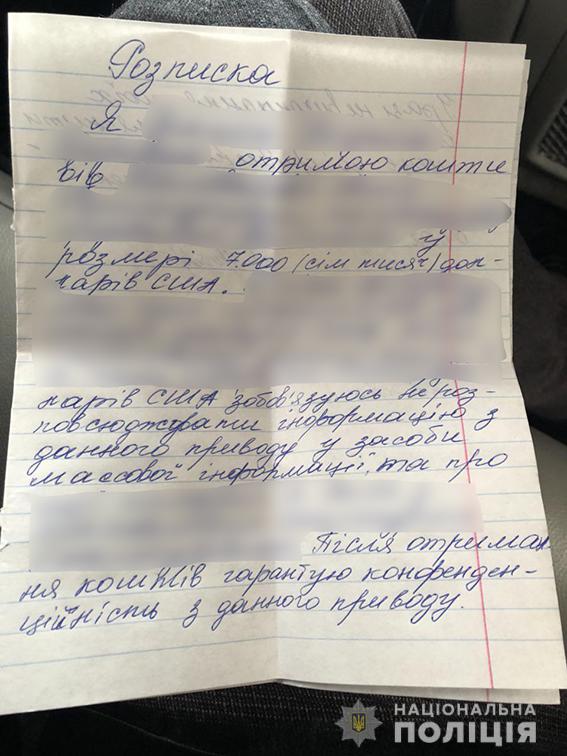 Розписка
Я
отримою кошти
від
у
розмірі 7.000 (сім тисяч) дол-
ларів США.
ларів США зобов'язуюсь не роз-
повсюджувати інформацію з
данного приводу у засоби
массової інформації, та про
Після отриман-
ня коштів гарантую конфеден-
ційність з данного приводу.
НАЦІОНАЛЬНА
ПОЛІЦІЯ